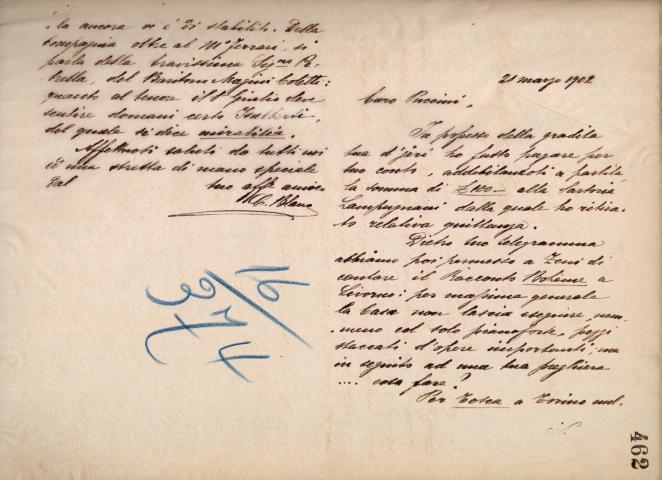 21 marzo 1902
Caro Puccini,
In possesso della gradita
tua d'jeri ho fatto pagare per
tuo conto, addebitandoti a partita,
la somma di £ 120- alla Sartoria
Lampugnani dalla quale ho ritira-
to relativa quittanza.
Dietro tuo telegramma
abbiamo poi permesso a Zeni di
cantare il Racconto Bohème a
Livorno: per massima generale
la Casa non lascia eseguire, nem-
meno col solo pianoforte, pezzi
staccati d'opere importanti, ma
in seguito ad una tua preghiera
.... cosa fare?
Per Tosca a Torino nul-
la ancora vi è di stabilito. Della
Compagnia oltre al Mo Ferrari, si
parla della bravissima Sigra Pe-
trella, del Baritono Magini Coletti:
quanto al tenore il Sr Giulio deve
sentire domani certo
del quale si dice mirabilia.
Affettuosi saluti da tutti noi
ed una stretta di mano speciale
dal
tuo affo amico
C. Blanc
16/
374
462